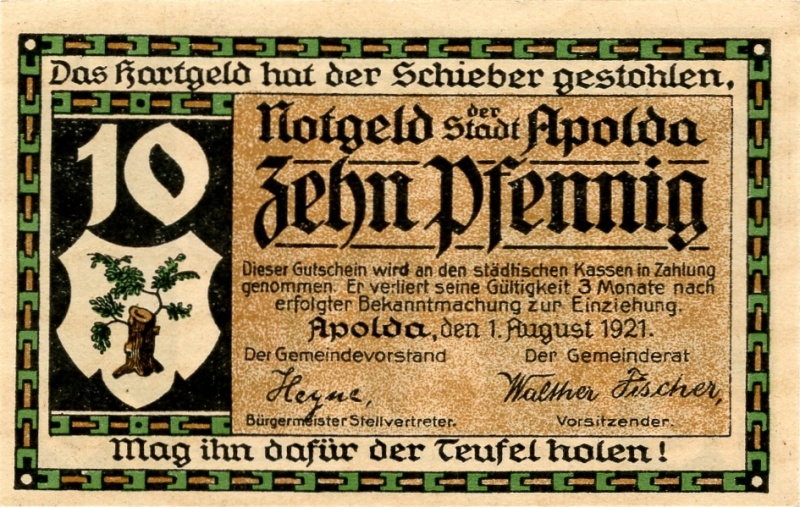 Das Hartgeld hat der Schieber gestohlen,
10
Notgeld der Stadt Apolda
Zehn Pfennig
Dieser Gutschein wird an den städtischen Kassen in Zahlung
genommen. Er verliert seine Gültigkeit 3 Monate nach
erfolgter Bekanntmachung zur Einziehung.
Apolda, den 1. August 1921.
Der Gemeindevorstand Der Gemeinderat
Heyne, Walther Fischer,
Bürgermeister Stellvertreter. Vorsitzender.
Mag ihn dafür der Teufel holen!